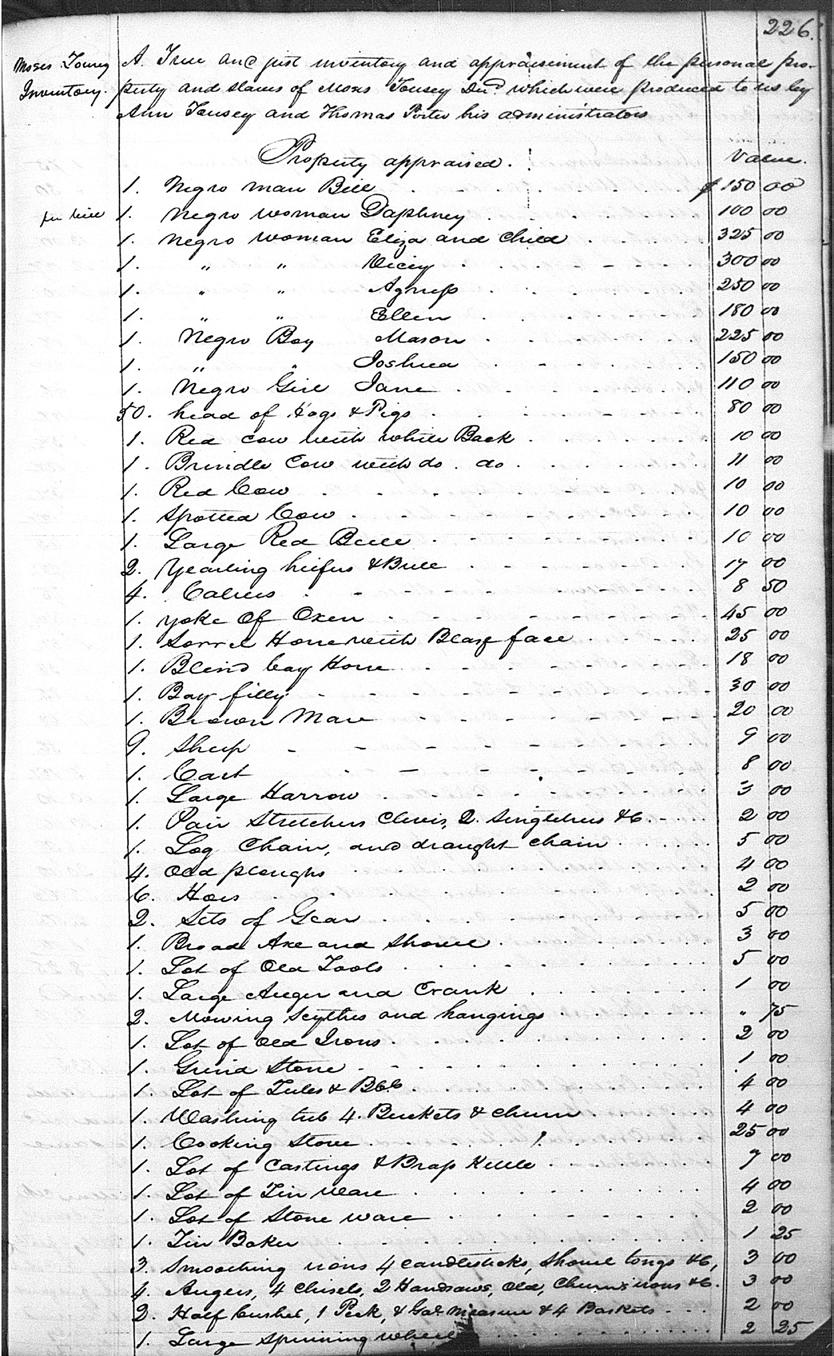 226.
Moses Tousey
Inventory.
A True and just inventory and appraisement of the personal pro-
perty and slaves of Moses Tousey Decd which were produced to us by
Ann Tousey and Thomas Porter his administrators
Property appraised. Value.
1. Negro man Bill $150 00
per bill 1. Negro woman Daphney 100 00
1. Negro woman Eliza and Child 325 00
1. " " Vicey 300 00
1. " " Agness 250 00
1. " " Ellen 180 00
1. Negro Boy Mason 225 00
1. " " Joshua 150 00
1. Negro Girl Jane 110 00
50. head of Hogs & Pigs 80 00
1. Red cow with white Back 10 00
1. Brindle Cow with do. do. 11 00
1. Red Cow 10 00
1. Spotted Cow 10 00
1. Large Red Bull 10 00
2. Yearling heifers & Bull 17 00
4. Calves 8 50
1. yoke Of Oxen 45 00
1. Sorrel Horse with Blase face 25 00
1. Blind bay Horse 18 00
1. Bay filly 30 00
1. Brown Mare 20 00
9. Sheep 9 00
1. Cart 8 00
1. Large Harrow 3 00
1. Pair Stretchers Clevis, 2. Singletrees &c 2 00
1. Log Chain, and draught chain 5 00
4. Old ploughs 4 00
6. Hoes 2 00
2. Sets of Gear 5 00
1. Broad Axe and Shovel 3 00
1. Lot of Old Tools 5 00
1. Large Auger and Crank 1 00
2. Mowing Scythes and hangings " 75
1. Lot of old Irons 2 00
1. Grind Stone 1 00
1. Lot of Tubs & Bbls 4 00
1. Washing tub 4. Buckets & Churn 4 00
1. Cooking Stove 25 00
1. Lot of Castings & Brass Kettle 7 00
1. Lot of Tin Ware 4 00
1. Lot of Stone ware 2 00
1. Tin Baker 1 25
3. Smoothing irons 4 candlesticks, Shovel tongs &c, 3 00
4. Augers, 4 chisels, 2 Handsaws, Old, irons &c. 3 00
2. Half bushel, 1 Peck, & Gal. Measure & 4 Baskets 2 00
1. Large spinning wheel 2 25